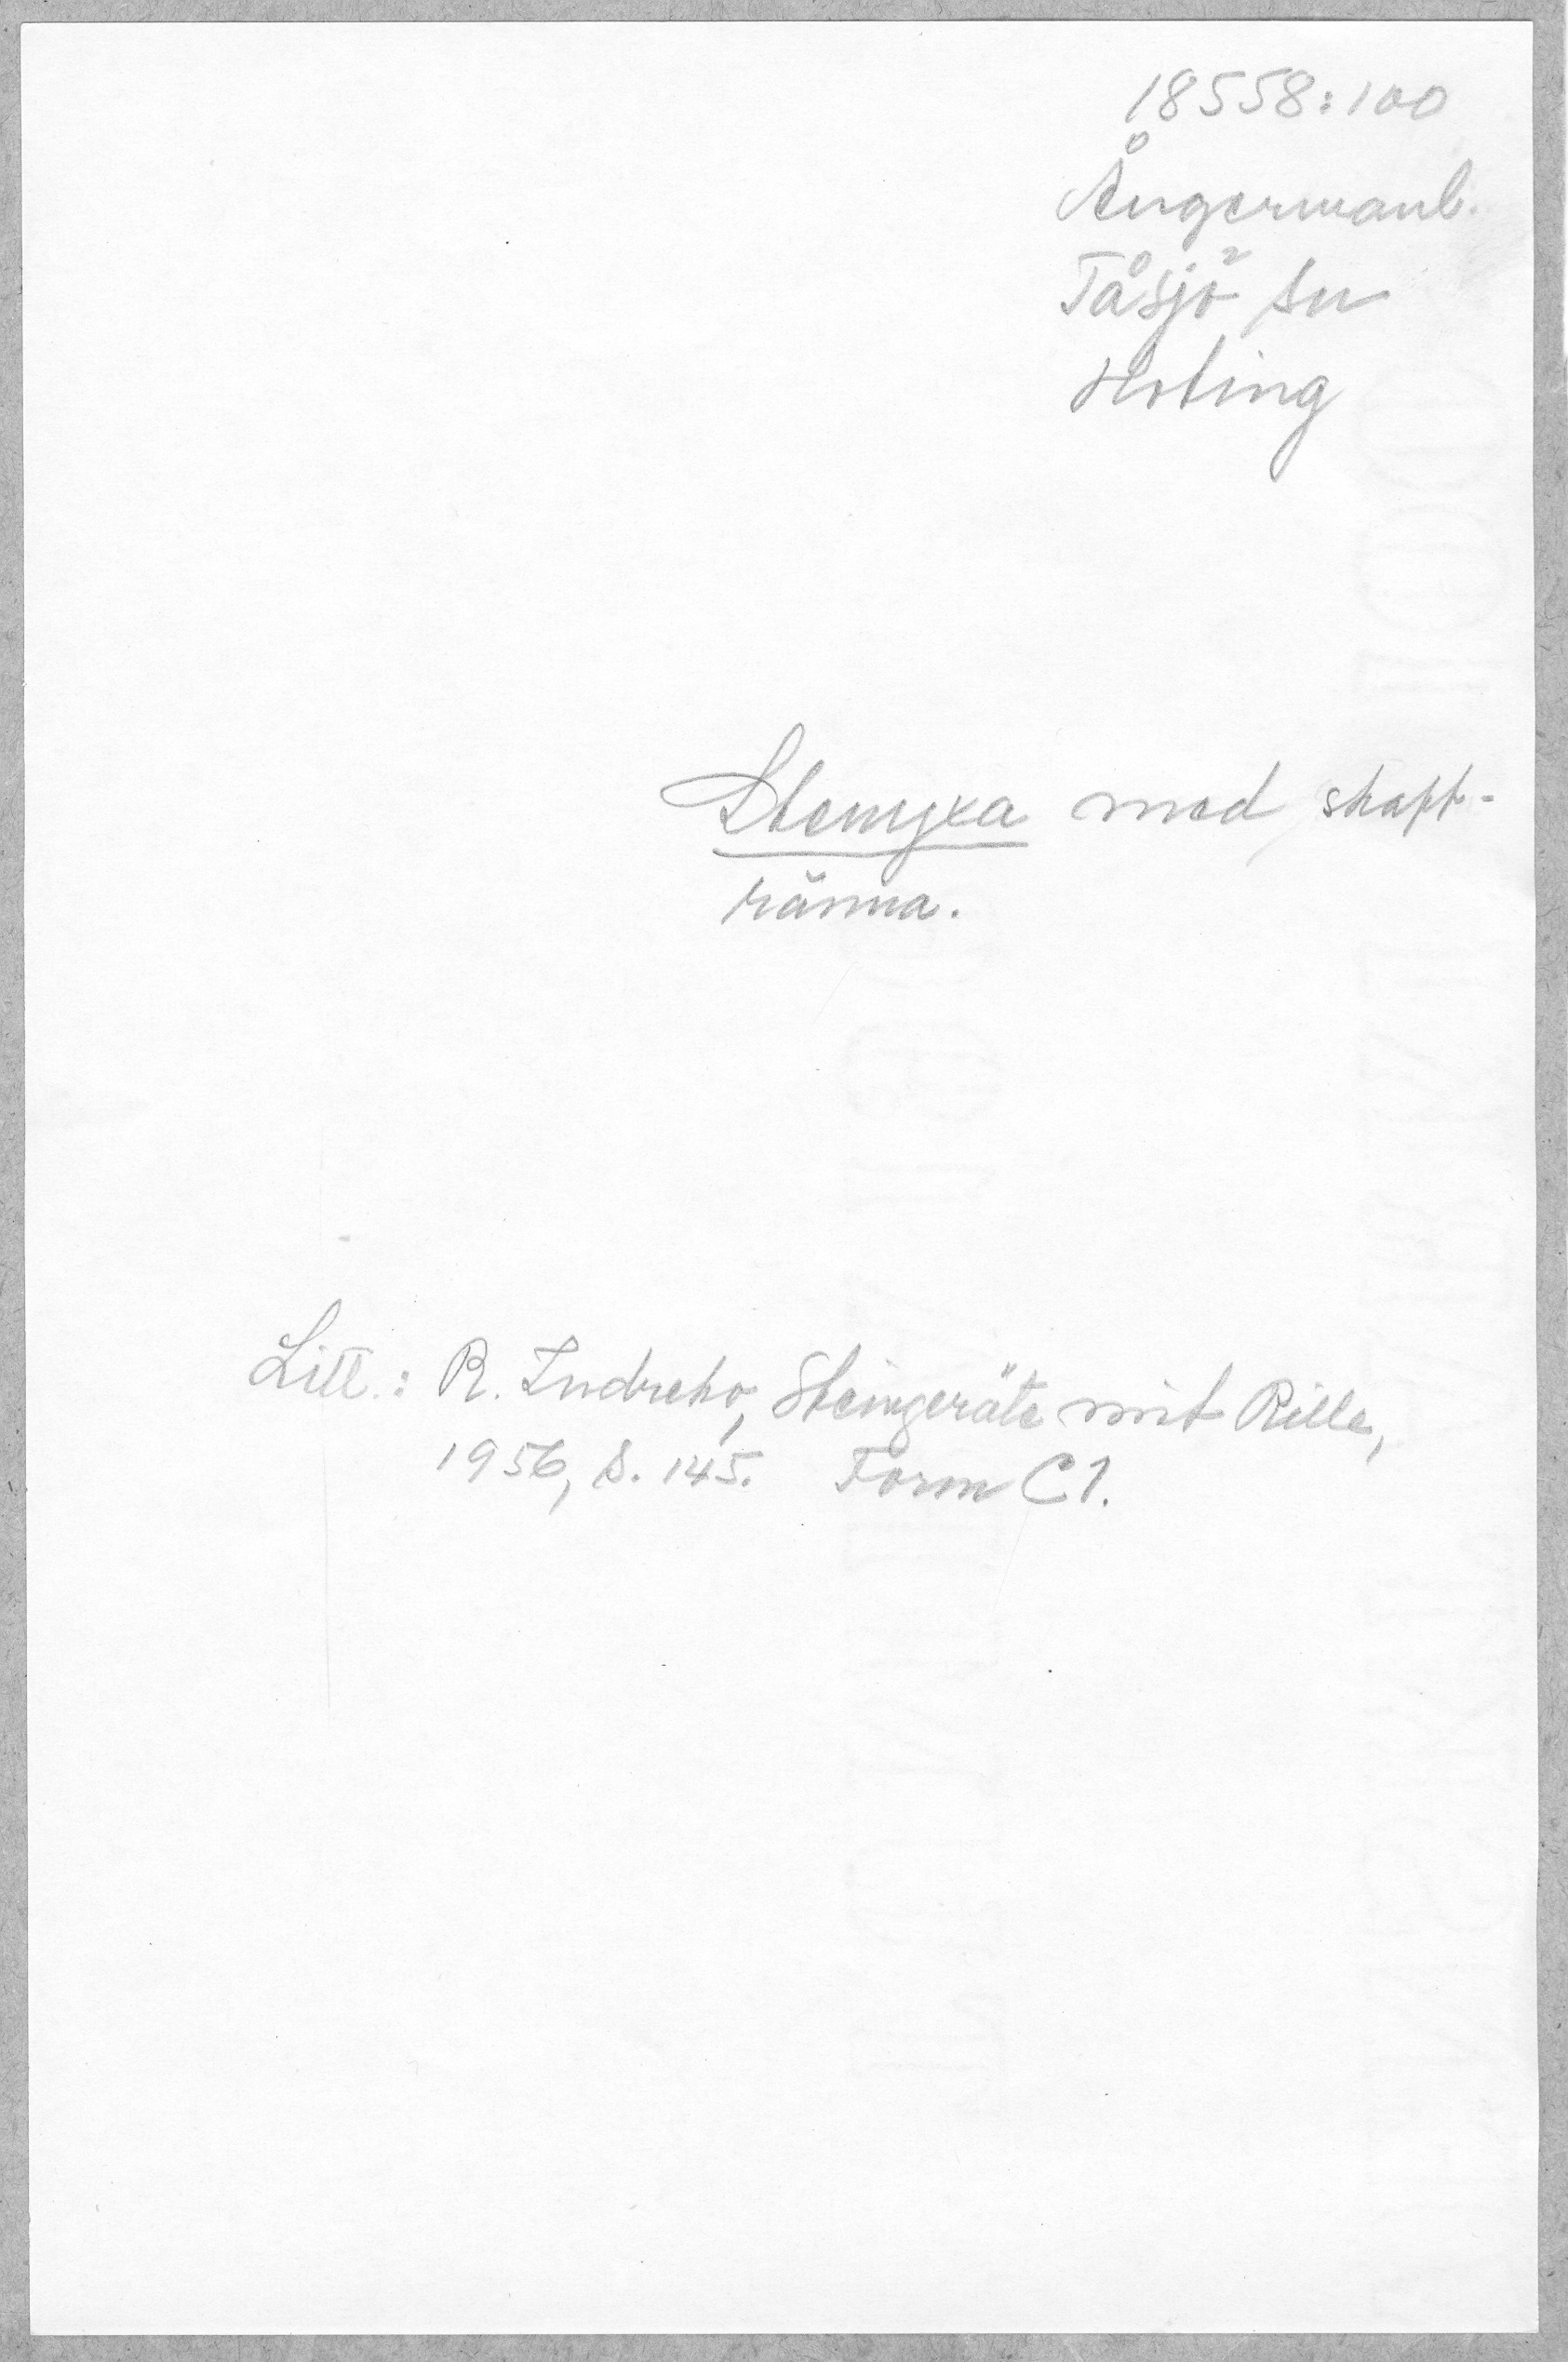 18558:100
Ångermanl.
Tåsjö sn
Hoting
Stenyxa med skaft-
ränna.
Litt.: R. Indreko, Steingeräte mit Rille,
1956, S. 145. Form C1.